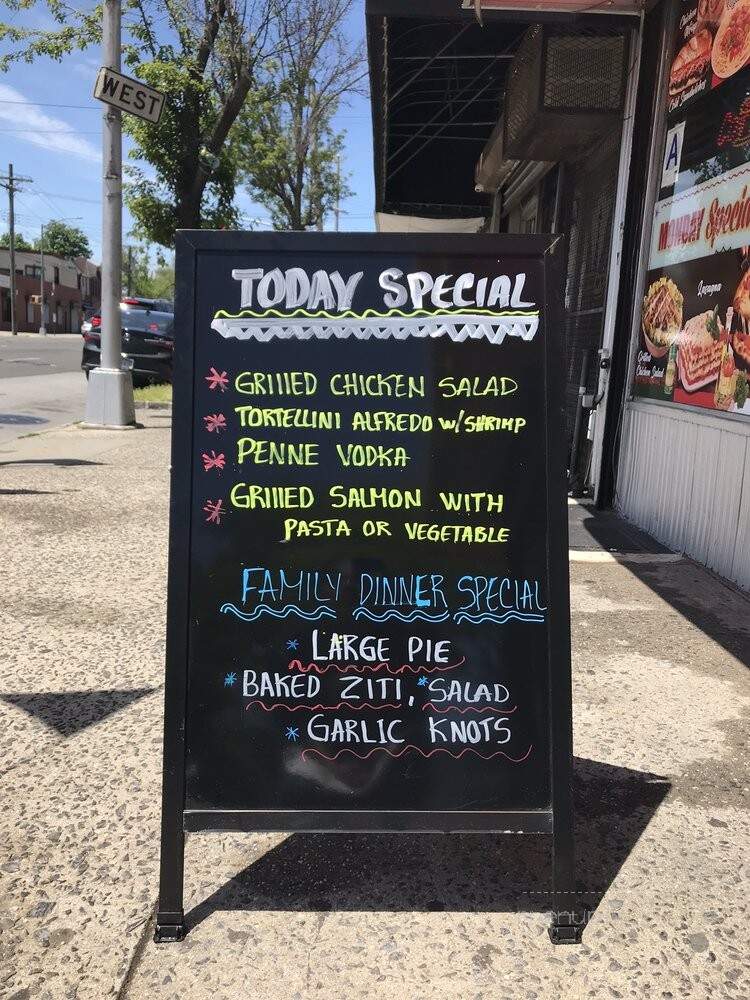 WEST
A
MONDAY Special
Lasagna
Grilled
Chicken Salad
TODAY SPECIAL
* GRIllED CHICKEN SALAD
* TORTELLINI ALFREDO W/SHRIMP
* PENNE VODKA
* GRIllED SALMON WITH
PASTA OR VEGETABLE
FAMILY DINNER SPECIAL
* LARGE PIE
* BAKED ZITI, * SALAD
* GARLIC KNOTS